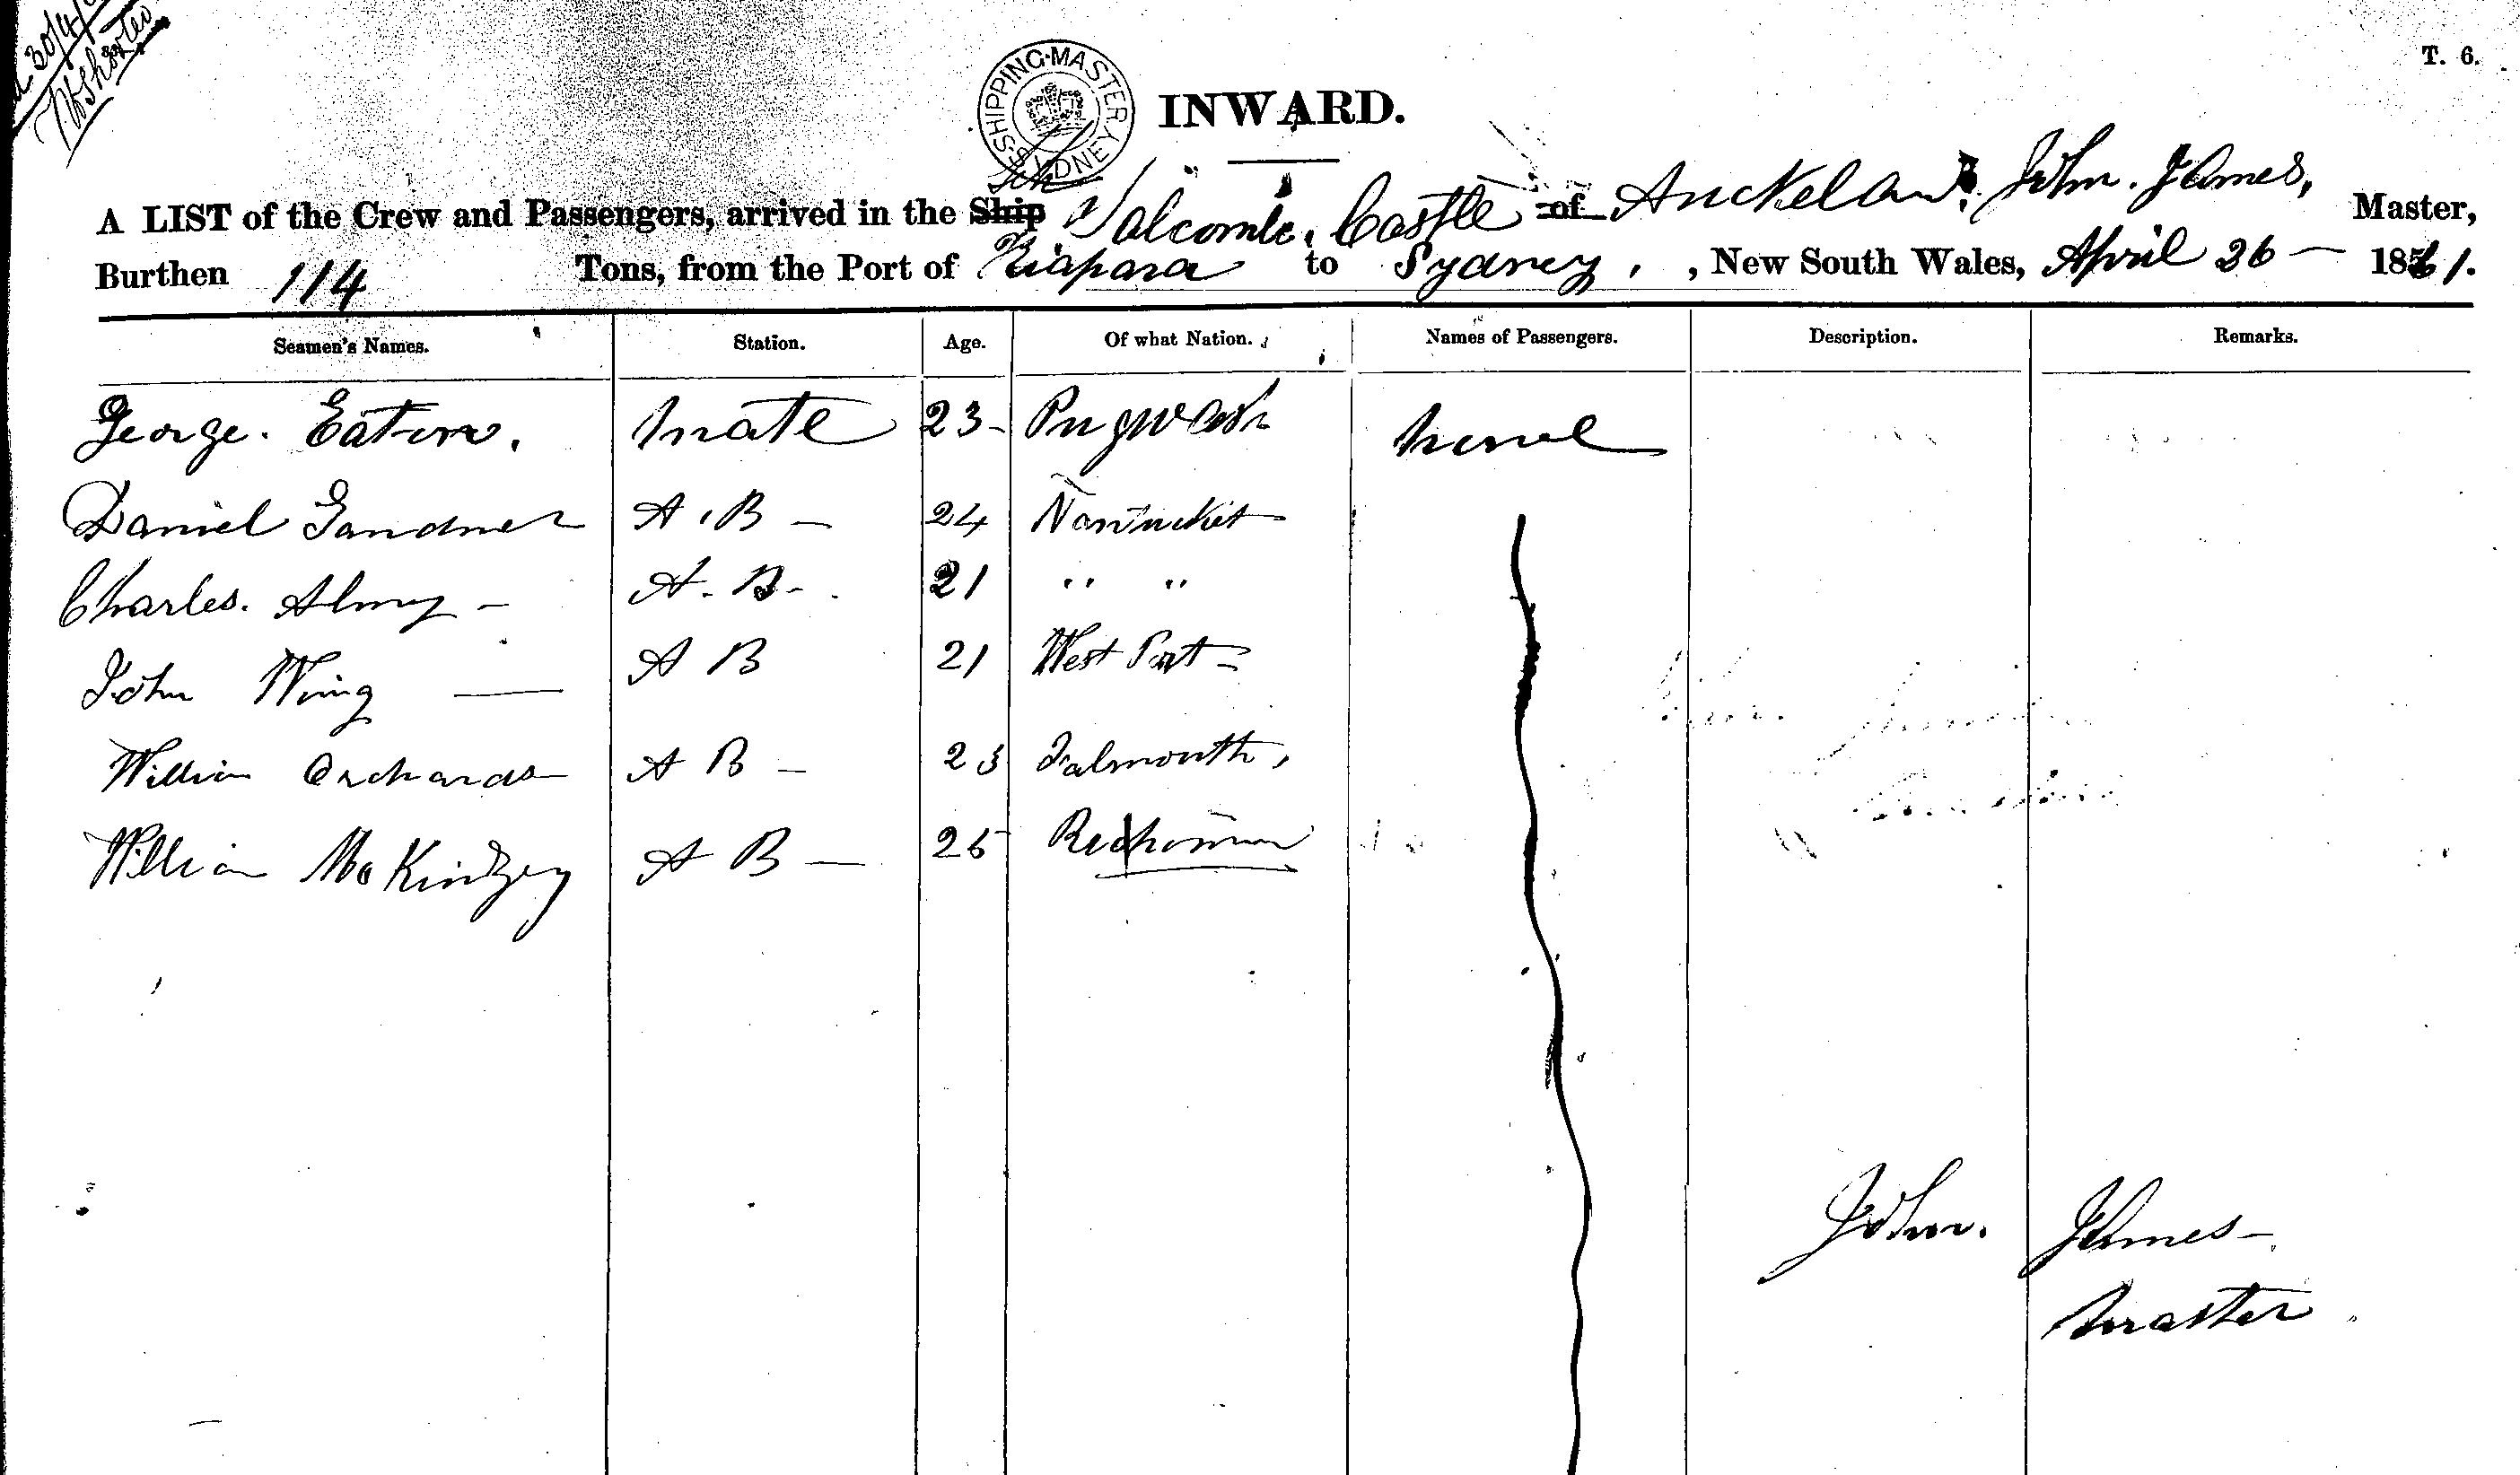 30/4/
T. 6.
SHIPPING·MASTER'S
SYDNEY
INWARD.
Sch
A LIST of the Crew and Passengers, arrived in the Ship Salcombe. Castle of Auckeland John. James, Master,
Burthen 114 Tons, from the Port of Kiapara to Sydney, , New South Wales, April 26 – 1861.
Seamen's Names. Station. Age. Of what Nation. Names of Passengers. Description. Remarks.
George. Eaton. Mate 23 – Pugwash none
Daniel Gardner A. B – 24 Nantucket
Charles. Almy – A. B – 21 " "
John Wing — A B 21 West Port –
William Orchards – A B – 23 Falmouth,
William McKinzey A B — 25
John. James –
Master